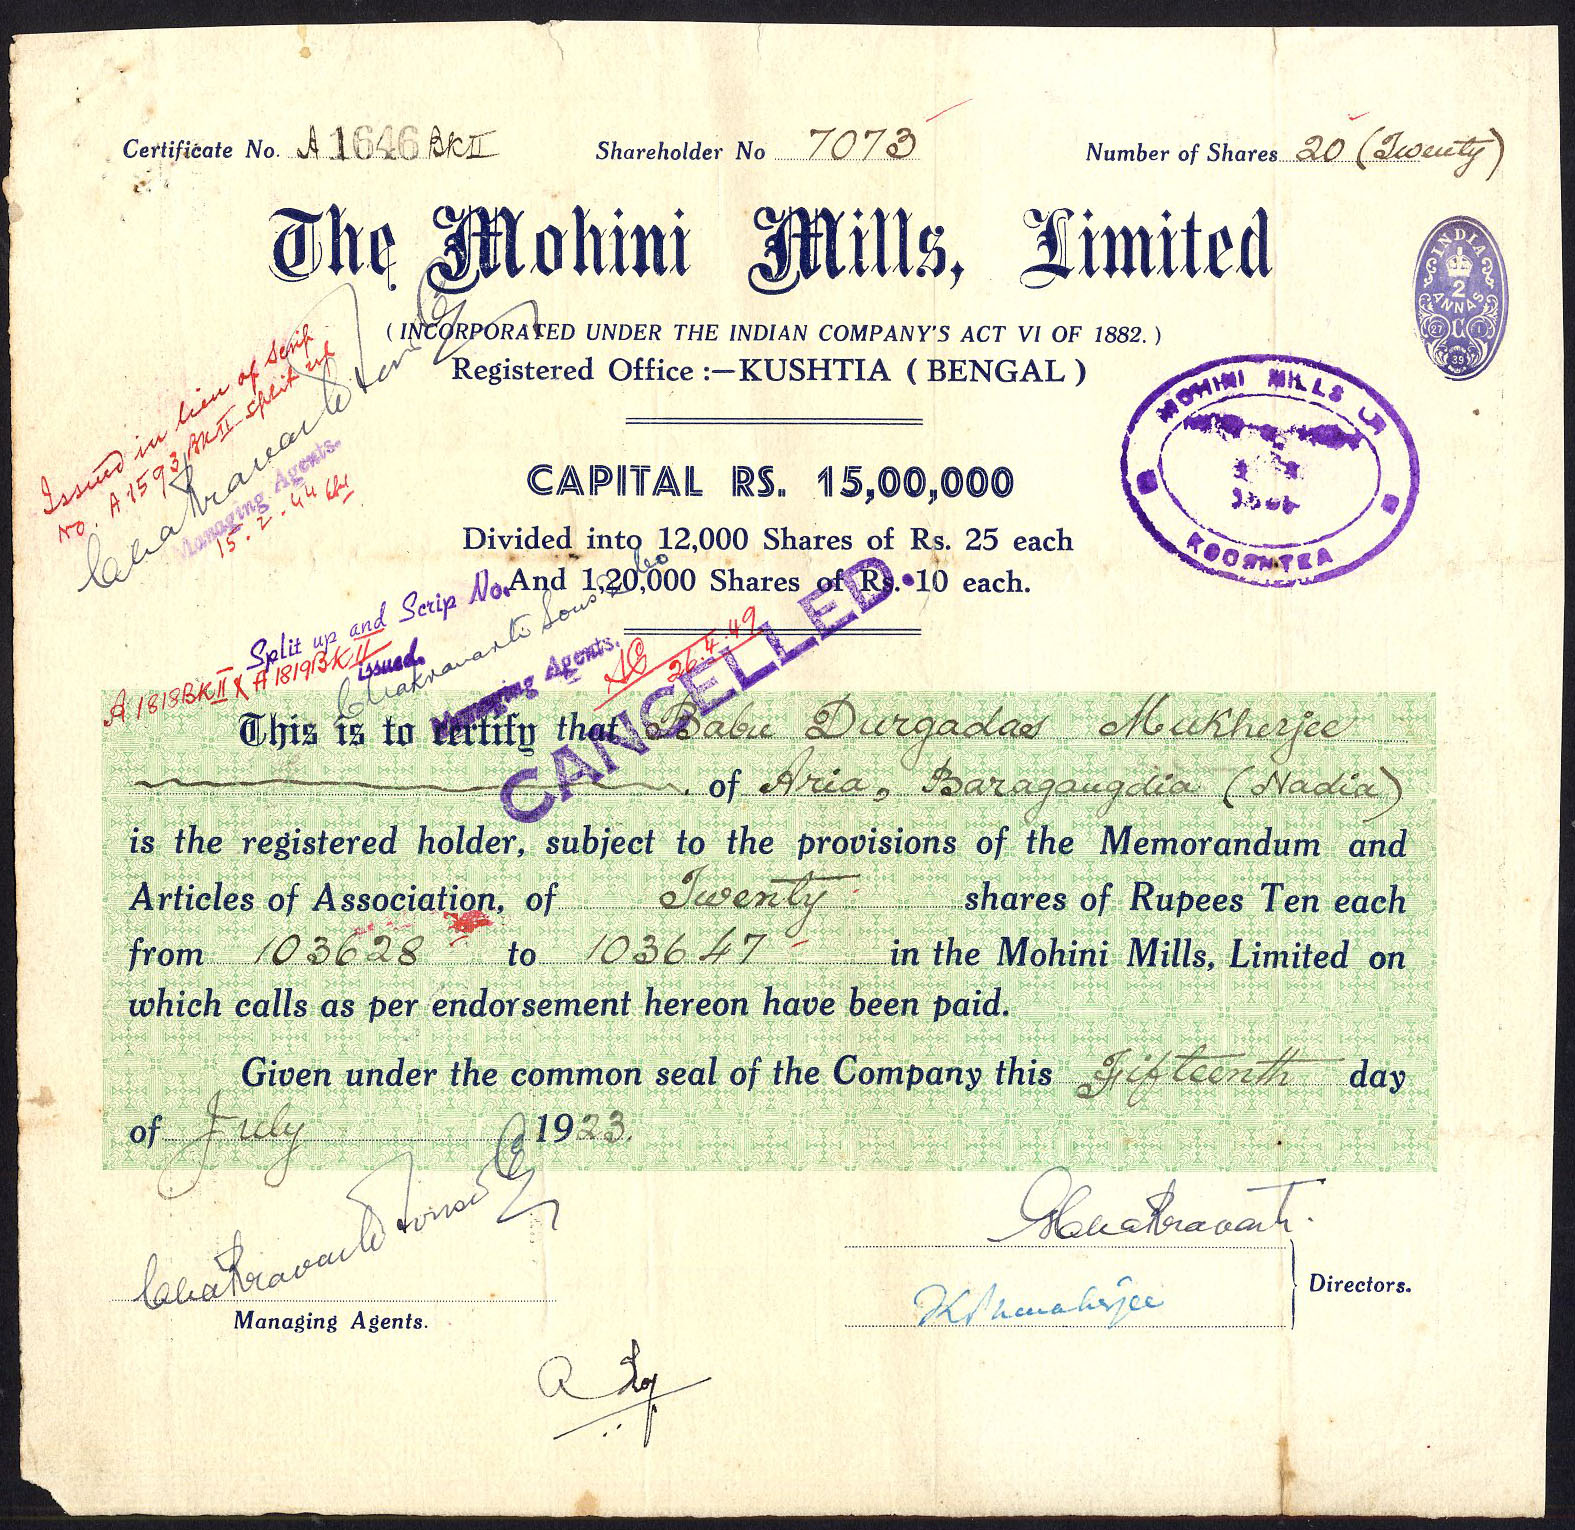 Certificate No. A 1646 BK II Shareholder No 7073 Number of Shares 20 (Twenty)
The Mohini Mills, Limited
INDIA
2
ANNAS
27 C 1
39
(INCORPORATED UNDER THE INDIAN COMPANY'S ACT VI OF 1882.)
Registered Office :—KUSHTIA (BENGAL)
MOHINI MILLS LD
Issued in lieu of Scrip
No. A 1593 BK II split up
Managing Agents.
15.2.44
CAPITAL RS. 15,00,000
Divided into 12,000 Shares of Rs. 25 each
And 1,20,000 Shares of Rs. 10 each.
Split up and Scrip No.
A 1818 BK II X A 1819 BK II issued.
Chakravarti Sons & Co
Managing Agents.
26.4.49
CANSELLED.
This is to certify that Babu Durgadas Mukherjee
of Aria, Baragangdia (Nadia)
is the registered holder, subject to the provisions of the Memorandum and
Articles of Association, of Twenty shares of Rupees Ten each
from 103628 to 103647 in the Mohini Mills, Limited on
which calls as per endorsement hereon have been paid.
Given under the common seal of the Company this Fifteenth day
of July 1923.
Chakravarti Sons & Co
Chakravarti
Managing Agents.
Directors.